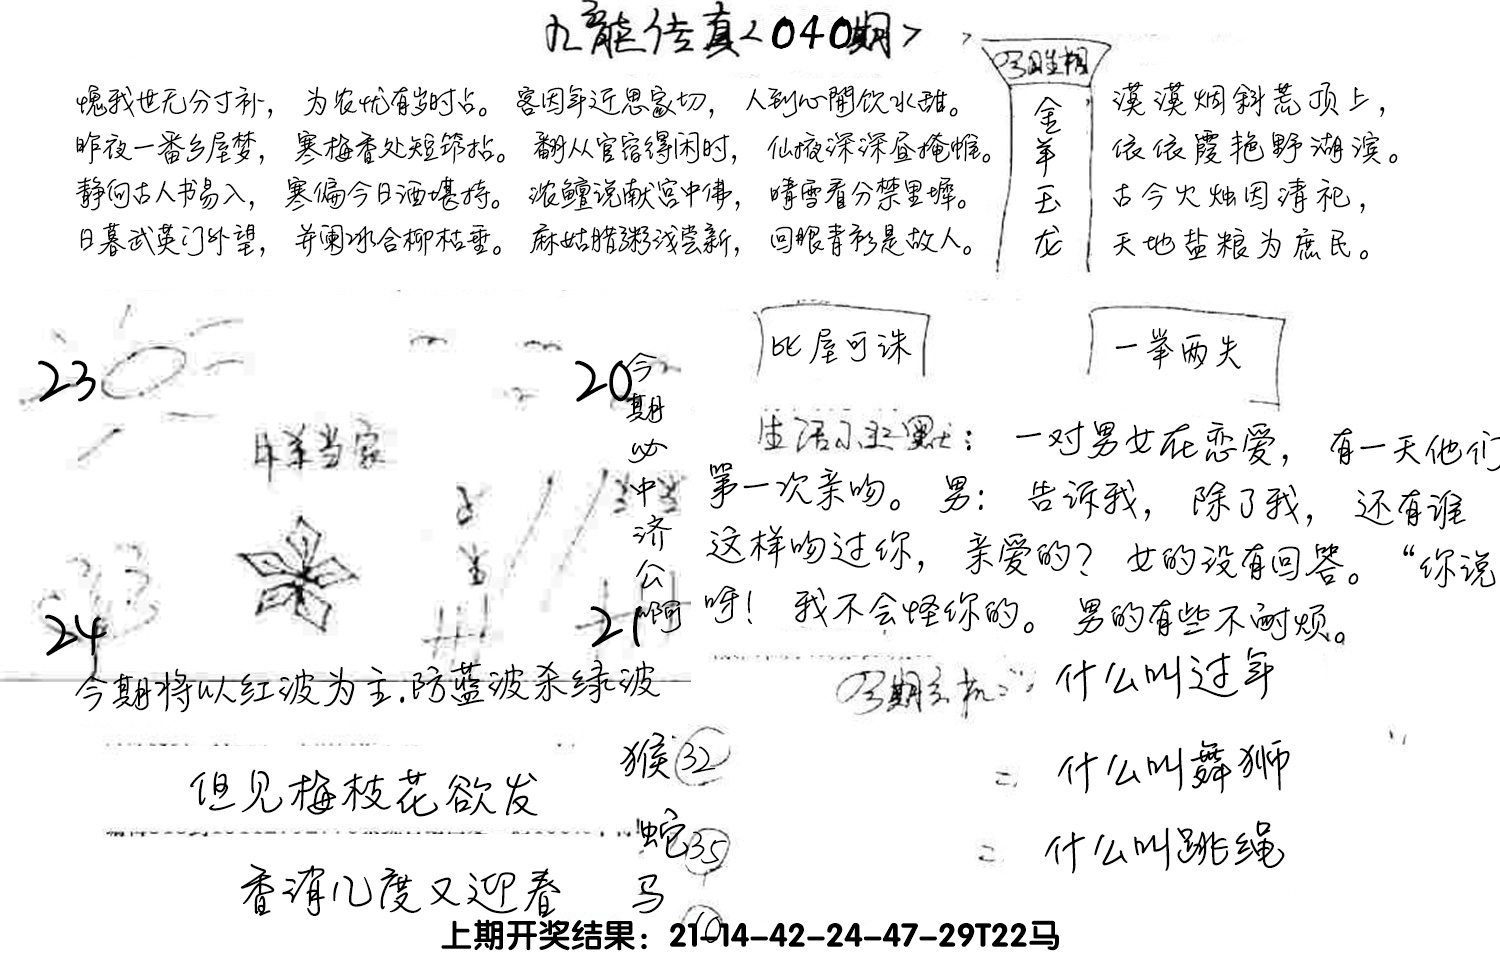 九龙传真<040期>
愧我世无分寸补，为农忧有当时占。客因年近思家切，人到心开饮水甜。
昨夜一番乡屋梦，寒梅香处短筇拈。翻从官宿得闲时，仙掖深深昼掩帷。
静向古人书易入，寒偏今日酒堪持。浓鳣说献宫中佛，晴雪看分禁里墀。
日暮武英门外望，井阑冰合柳枯垂。麻姑腊粥浅尝新，回眼青衫是故人。
今日生相
金羊玉龙
漠漠烟斜荒顶上，
依依霞艳野湖滨。
古今火烛因清祀，
天地盐粮为庶民。
23
20
24
21
羊当家
今期必中济公啊
今期将以红波为主.防蓝波杀绿波
比屋可诛
一举两失
生活幽默：一对男女在恋爱，有一天他们
第一次亲吻。男：告诉我，除了我，还有谁
这样吻过你，亲爱的？女的没有回答。“你说
呀！我不会怪你的。男的有些不耐烦。
今期玄机：什么叫过年
= 什么叫舞狮
= 什么叫跳绳
但见梅枝花欲发
香消几度又迎春
猴32
蛇35
马10
上期开奖结果：21-14-42-24-47-29T22马